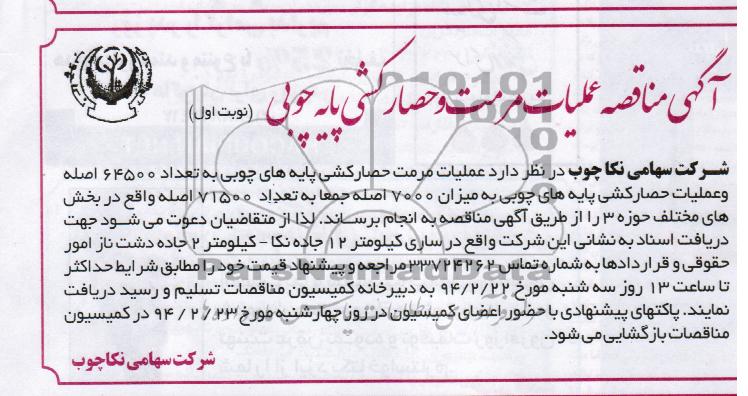 آگهی مناقصه عملیات مرمت و حصارکشی پایه چوبی
(نوبت اول)
شرکت سهامی نکا چوب در نظر دارد عملیات مرمت حصارکشی پایه های چوبی به تعداد ۶۴۵۰۰ اصله
وعملیات حصارکشی پایه های چوبی به میزان ۷۰۰۰ اصله جمعا به تعداد ۷۱۵۰۰ اصله واقع در بخش
های مختلف حوزه ۳ را از طریق آگهی مناقصه به انجام برساند. لذا از متقاضیان دعوت می شود جهت
دریافت اسناد به نشانی این شرکت واقع در ساری کیلومتر ۱۲ جاده نکا - کیلومتر ۲ جاده دشت ناز امور
حقوقی و قراردادها به شماره تماس ۳۳۷۲۴۲۶۲ مراجعه و پیشنهاد قیمت خود را مطابق شرایط حداکثر
تا ساعت ۱۳ روز سه شنبه مورخ ۹۴/۲/۲۲ به دبیرخانه کمیسیون مناقصات تسلیم و رسید دریافت
نمایند. پاکتهای پیشنهادی با حضور اعضای کمیسیون در روز چهارشنبه مورخ ۲۳ / ۲ / ۹۴ در کمیسیون
مناقصات بازگشایی می شود.
شرکت سهامی نکاچوب
ParsNamadData